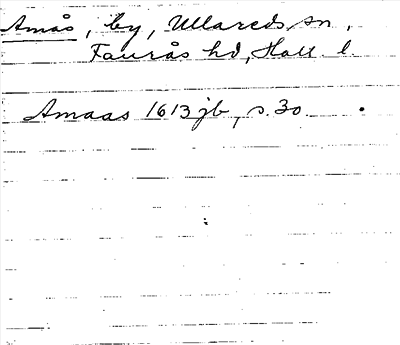 Amås, by, Ullareds sn,
Faurås hd, Hall. l.
Amaas 1613 jb, s. 30.